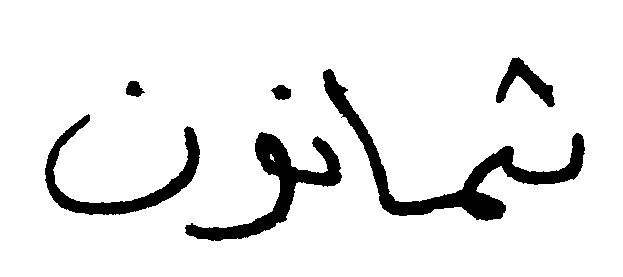 ثمانون